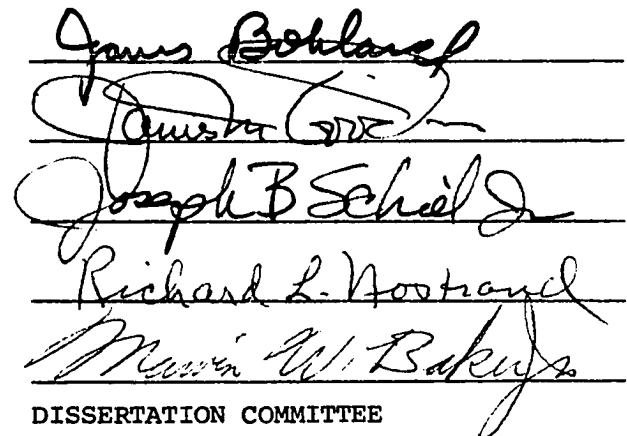 James Bohland
James M
Joseph B Schiel Jr
Richard L. Nostrand
Marvin W. Baker Jr
DISSERTATION COMMITTEE